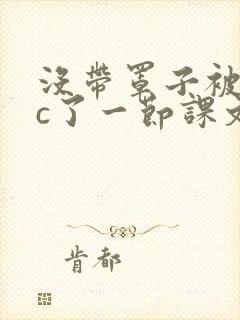 没带罩子被
c了一节课文
肯都